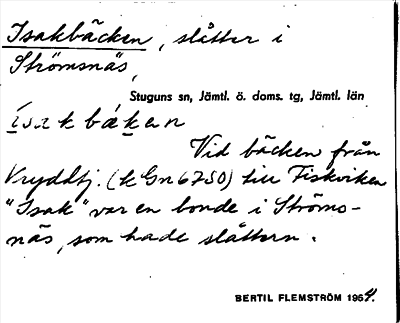 Isakbäcken, slåtter i
Strömsnäs,
Stuguns sn, Jämtl. ö. doms. tg, Jämtl. län
ísakbäken
Vid bäcken från
Kryddtj. (k Gn 6750) till Fiskviken
"Isak" var en bonde i Ströms-
näs, som hade slåttern.
BERTIL FLEMSTRÖM 1964.